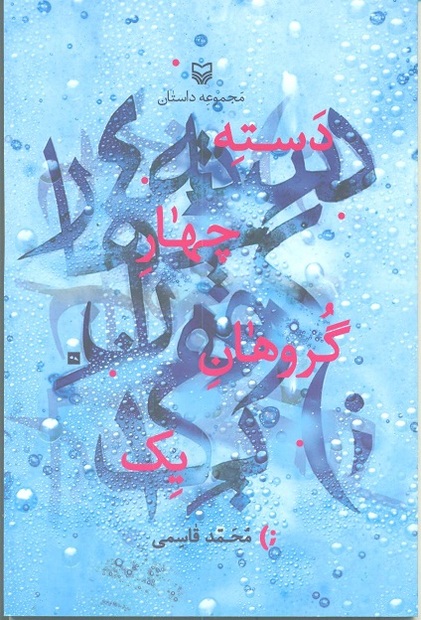 مَجموعِه داستان
دَستِهِ
چهارِ
گُروهانِ
یِک
مُحَمّد قاسِمی